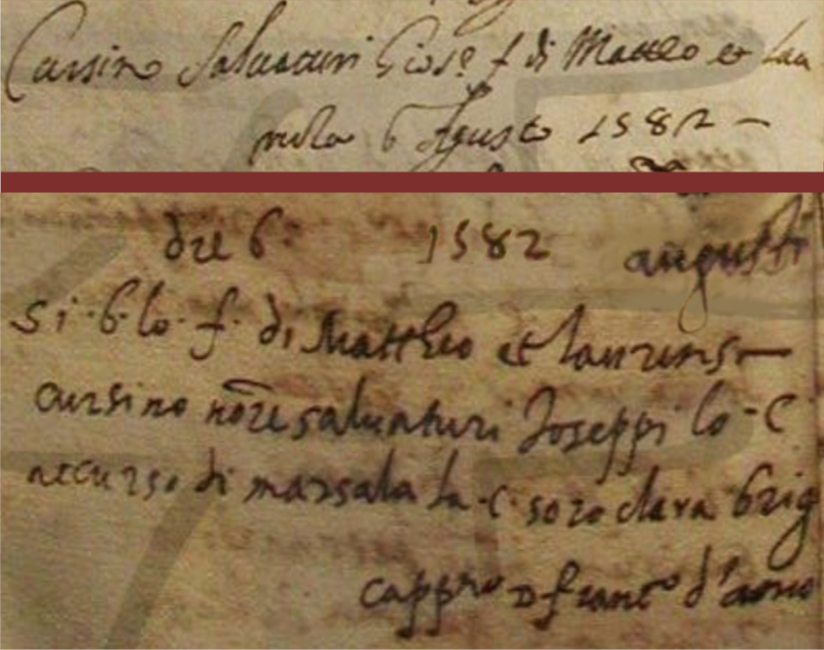 Cursino Salvaturi Gios.e f. di Matteo et Lau
6 Agusto 1582 –
die 6 1582 augusti
Si · b · lo · f · di Mattheo et laurens–
cursino nōe salvaturi Joseppi lo · C ·
di marsala la · C · soro clara brig
cappno D franc.o d'